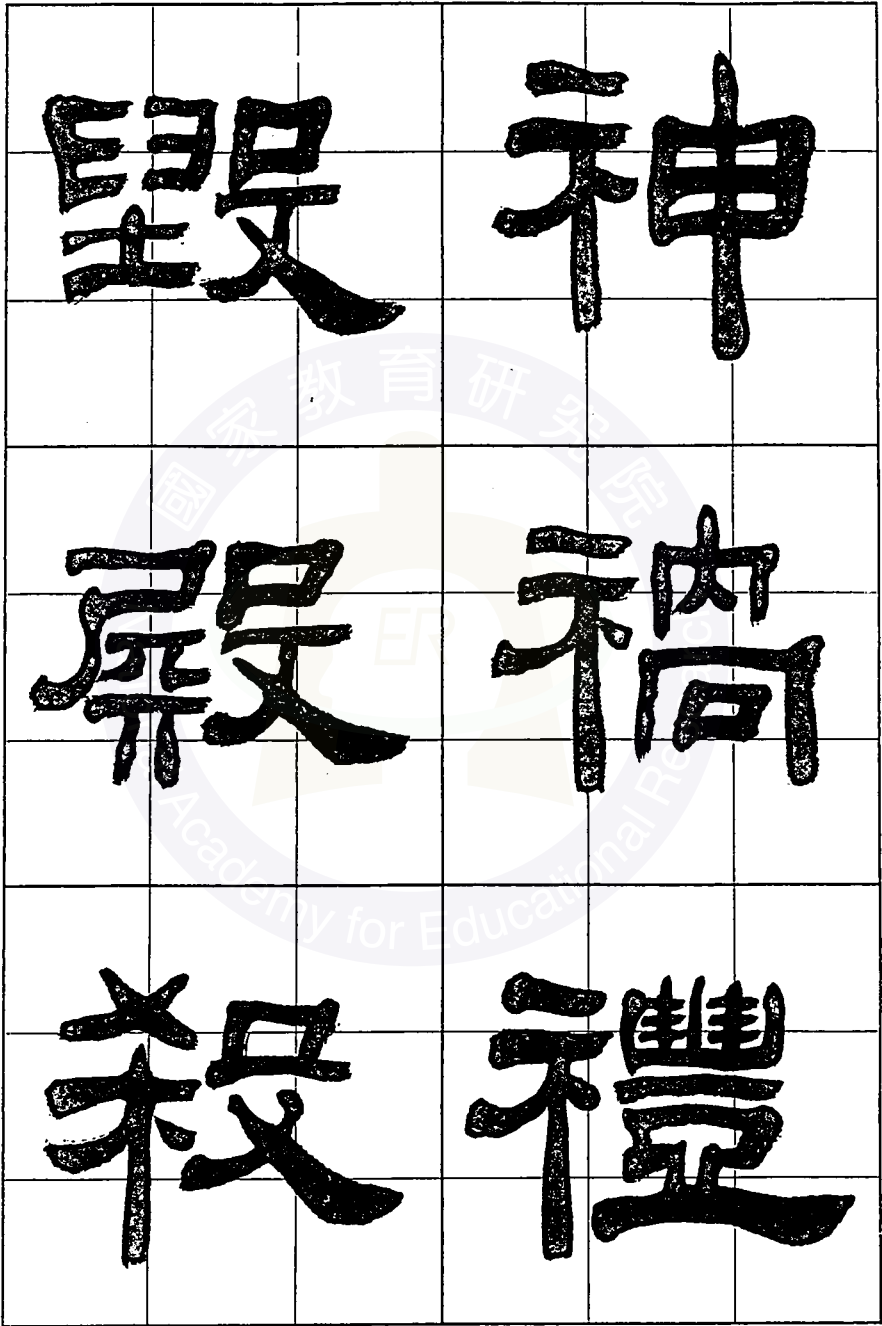 神禍禮
毀殿殺
國家教育研究院
National Academy for Educational Research